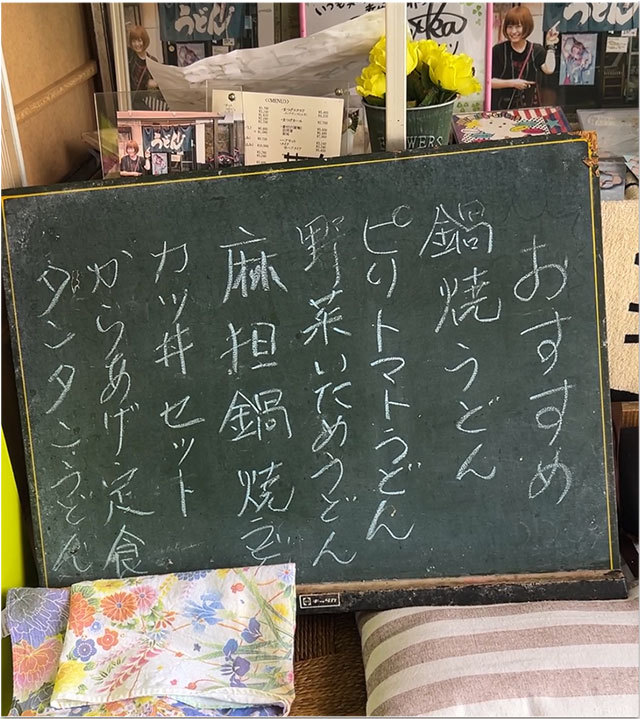 うどん
《MENU》
うどん
おすすめ
鍋焼うどん
ピリトマトうどん
野菜いためうどん
麻担鍋焼うど
カツ丼セット
からあげ定食
タンタンうどん